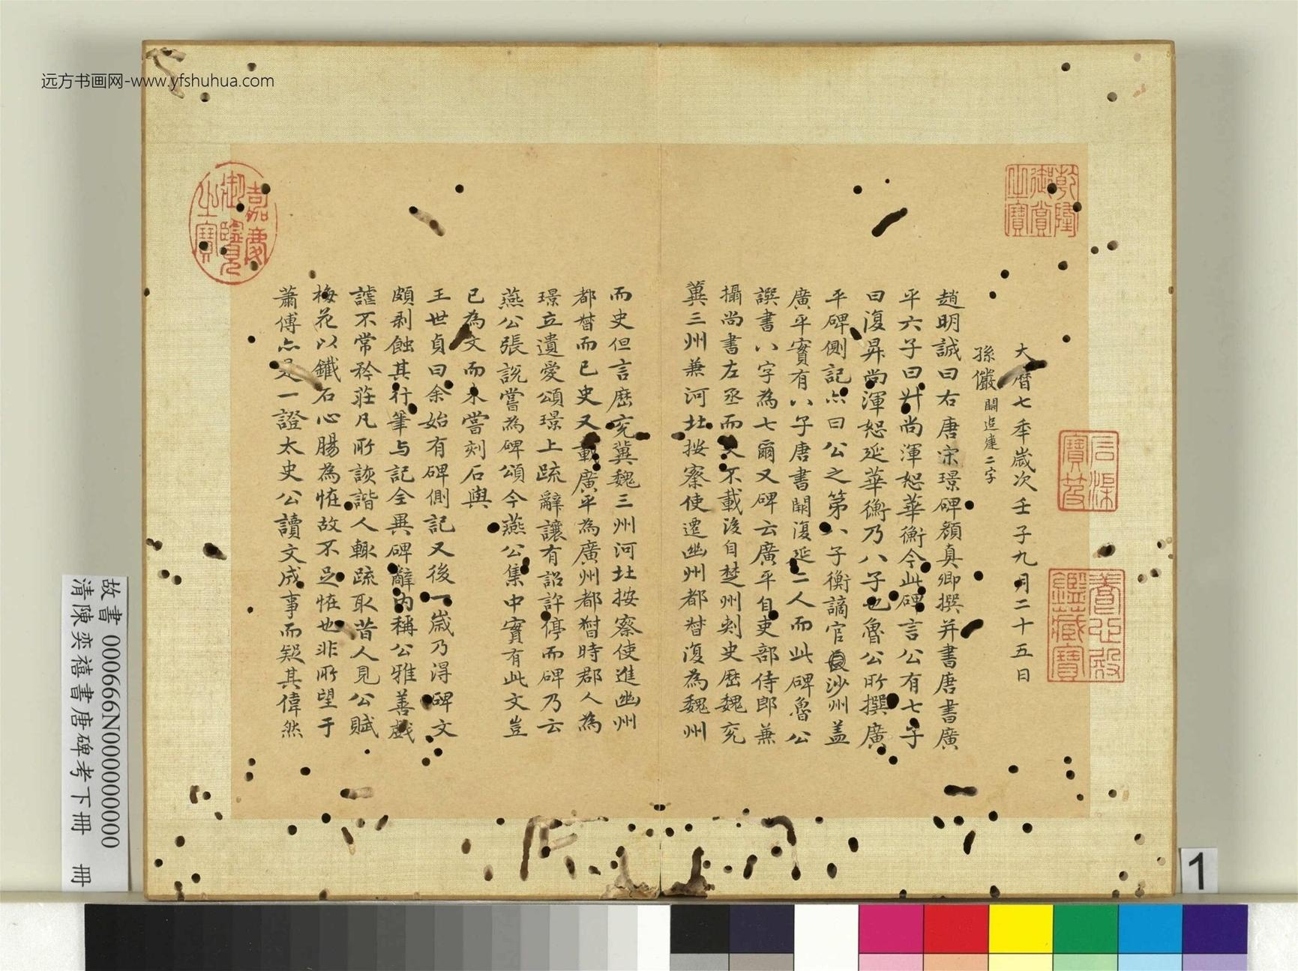 远方书画网-www.yfshuhua.com
乾隆御賞之寶
石渠寶笈
養心殿鑑藏寶
大曆七年歲次壬子九月二十五日
孫儼
闕追建二字
趙明誠曰右唐宋璟碑顏真卿撰并書唐書廣
平六子曰昇尚渾恕華衡今此碑言公有七子
曰復昇尚渾恕延華衡乃八子也魯公所撰廣
平碑側記亦曰公之第八子衡謫官沙州蓋
廣平實有八子唐書闕復延二人而此碑魯公
誤書八字為七爾又碑云廣平自吏部侍郎兼
攝尚書左丞而史不載後自楚州刺史歷魏兗
冀三州兼河北按察使遷幽州都督復為魏州
而史但言歷兗冀魏三州河北按察使進幽州
都督而已史又載廣平為廣州都督時郡人為
璟立遺愛頌璟上疏辭讓有詔許停而碑乃云
燕公張說嘗為碑頌今燕公集中實有此文豈
已為文而未嘗刻石與
王世貞曰余始有碑側記又後一歲乃得碑文
頗剝蝕其行筆与記全異碑辭內稱公雅善戲
謔不常矜莊凡所談諧人輒疏取昔人見公賦
梅花以鐵石心腸為恠故不足恠也非所望于
蕭傅亦是一證太史公讀文成事而疑其偉然
嘉慶御覽之寶
故書 000666N000000000
清陳奕禧書唐碑考下冊 冊
1